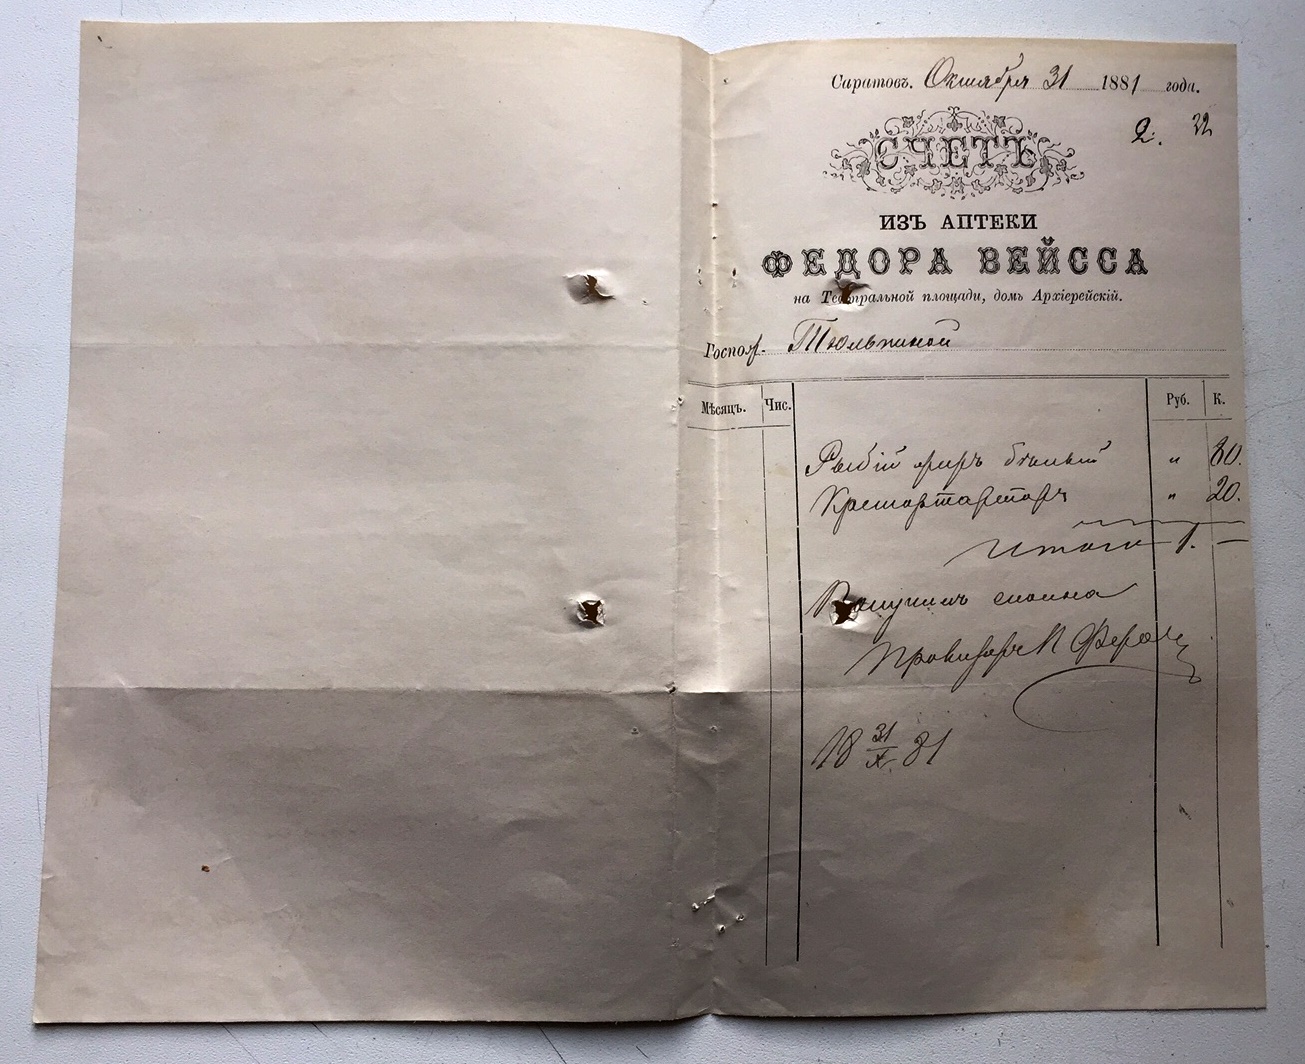 Саратовъ. Октября 31 1881 года.
2. 22
СЧЕТЪ
ИЗЪ АПТЕКИ
ФЕДОРА ВЕЙССА
на Театральной площади, домъ Архіерейскій.
Госпож. Тюльпиной
Мѣсяцъ. Чис. Руб. К.
Рыбій жиръ бѣлый " 80.
Кремортартаръ " 20.
Итого 1. —
Получилъ сполна
Провизоръ
18 31/X 81